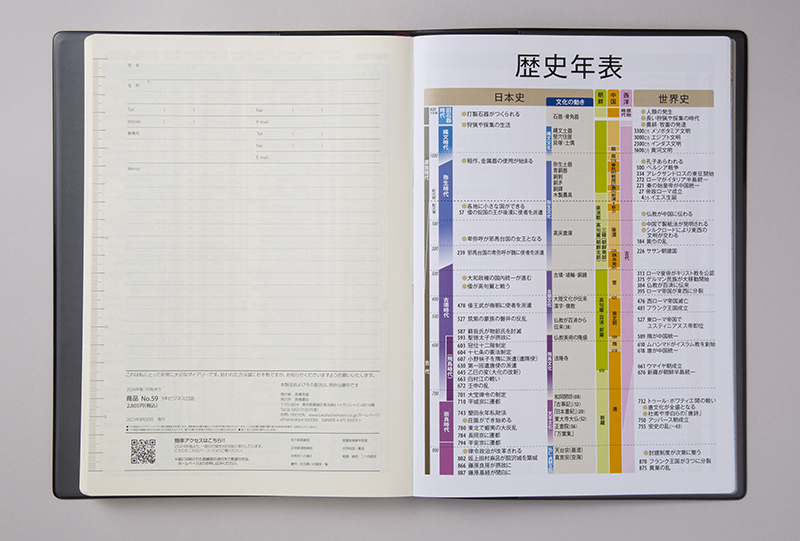 氏名
住所
Tel
Fax
Mobile
E-mail
勤務先
Tel
Fax
E-mail
Memo
これは私にとって非常に大切なダイアリーです。拾われた方は誠にお手数ですが、お知らせくださいますようお願いいたします。
商品 No.59 3年ビジネス日誌
2,805円(税込)
簡単アクセスはこちら!!
歴史年表
日本史
文化の動き
朝鮮
中国
西洋
世界史
旧石器時代
打製石器がつくられる
狩猟や採集の生活
石器・骨角器
人類の発生
長い狩猟や採集の時代
農耕・牧畜の発達
縄文時代
縄文土器
竪穴住居
貝塚・土偶
3500ごろ メソポタミア文明
3000ごろ エジプト文明
2300ごろ インダス文明
1600ごろ 黄河文明
弥生時代
稲作、金属器の使用が始まる
弥生土器
青銅器
銅剣
銅矛
銅鐸
木製農具
孔子あらわれる
500 ペルシア戦争
334 アレクサンドロスの東征開始
272 ローマがイタリア半島統一
221 秦の始皇帝が中国統一
27 帝政ローマ成立
4ごろ イエス生誕
各地に小さな国ができる
57 倭の奴国の王が後漢に使者を派遣
仏教が中国に伝わる
中国で製紙法が発明される
シルクロードにより東西の
文明が交わる
184 黄巾の乱
卑弥呼が邪馬台国の女王となる
239 邪馬台国の卑弥呼が魏に使者を派遣
高床倉庫
226 ササン朝建国
古墳時代
大和政権の国内統一が進む
倭が高句麗と戦う
古墳・埴輪・銅鏡
313 ローマ皇帝がキリスト教を公認
375 ゲルマン民族が大移動開始
384 仏教が百済に伝来
395 ローマ帝国が東西に分裂
478 倭王武が南朝に使者を派遣
大陸文化が伝来
漢字・儒教
476 西ローマ帝国滅亡
481 フランク王国成立
527 筑紫の豪族の磐井の反乱
仏教が百済から
伝来(38)
527 東ローマ帝国で
ユスティニアヌス帝即位
587 蘇我氏が物部氏を討滅
593 聖徳太子が摂政に
仏教美術の隆盛
589 隋が中国統一
飛鳥時代
603 冠位十二階制定
604 十七条の憲法制定
607 小野妹子を隋に派遣(遣隋使)
630 第一回遣唐使の派遣
645 乙巳の変(大化の改新)
663 白村江の戦い
672 壬申の乱
法隆寺
610 ムハンマドがイスラム教を創始
618 唐が中国統一
661 ウマイヤ朝成立
676 新羅が朝鮮半島統一
古代
奈良時代
701 大宝律令の制定
710 平城京に遷都
743 墾田永年私財法
荘園ができ始める
780 東北で蝦夷の大反乱
784 長岡京に遷都
794 平安京に遷都
和同開珎(08)
『古事記』(12)
『日本書紀』(20)
東大寺大仏(52)
正倉院(56)
『万葉集』
732 トゥール・ポワティエ間の戦い
唐文化が全盛となる
杜甫や李白らの「唐詩」
750 アッバース朝成立
755 安史の乱(~63)
律令政治が改革される
802 坂上田村麻呂が胆沢城を築城
866 藤原良房が摂政に
887 藤原基経が関白に
天台宗(最澄)
真言宗(空海)
封建制度が次第に整う
870 フランク王国が3つに分裂
875 黄巣の乱